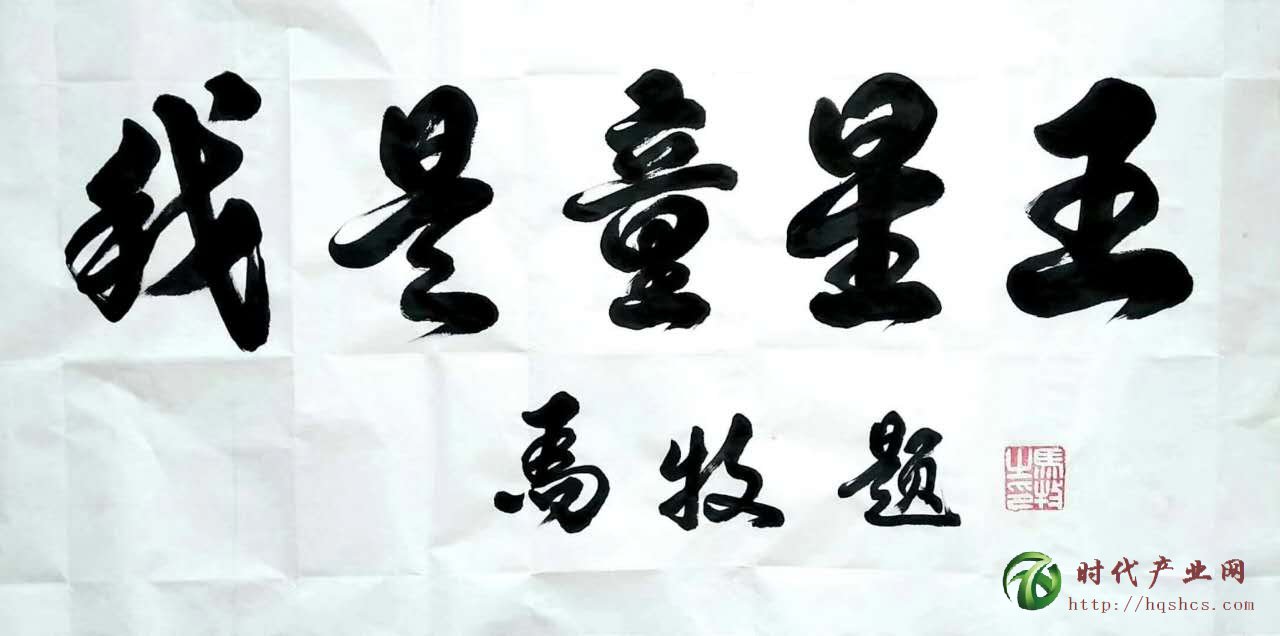 我是童星王
馬牧题
馬牧之印
时代产业网
http://hqshcs.com